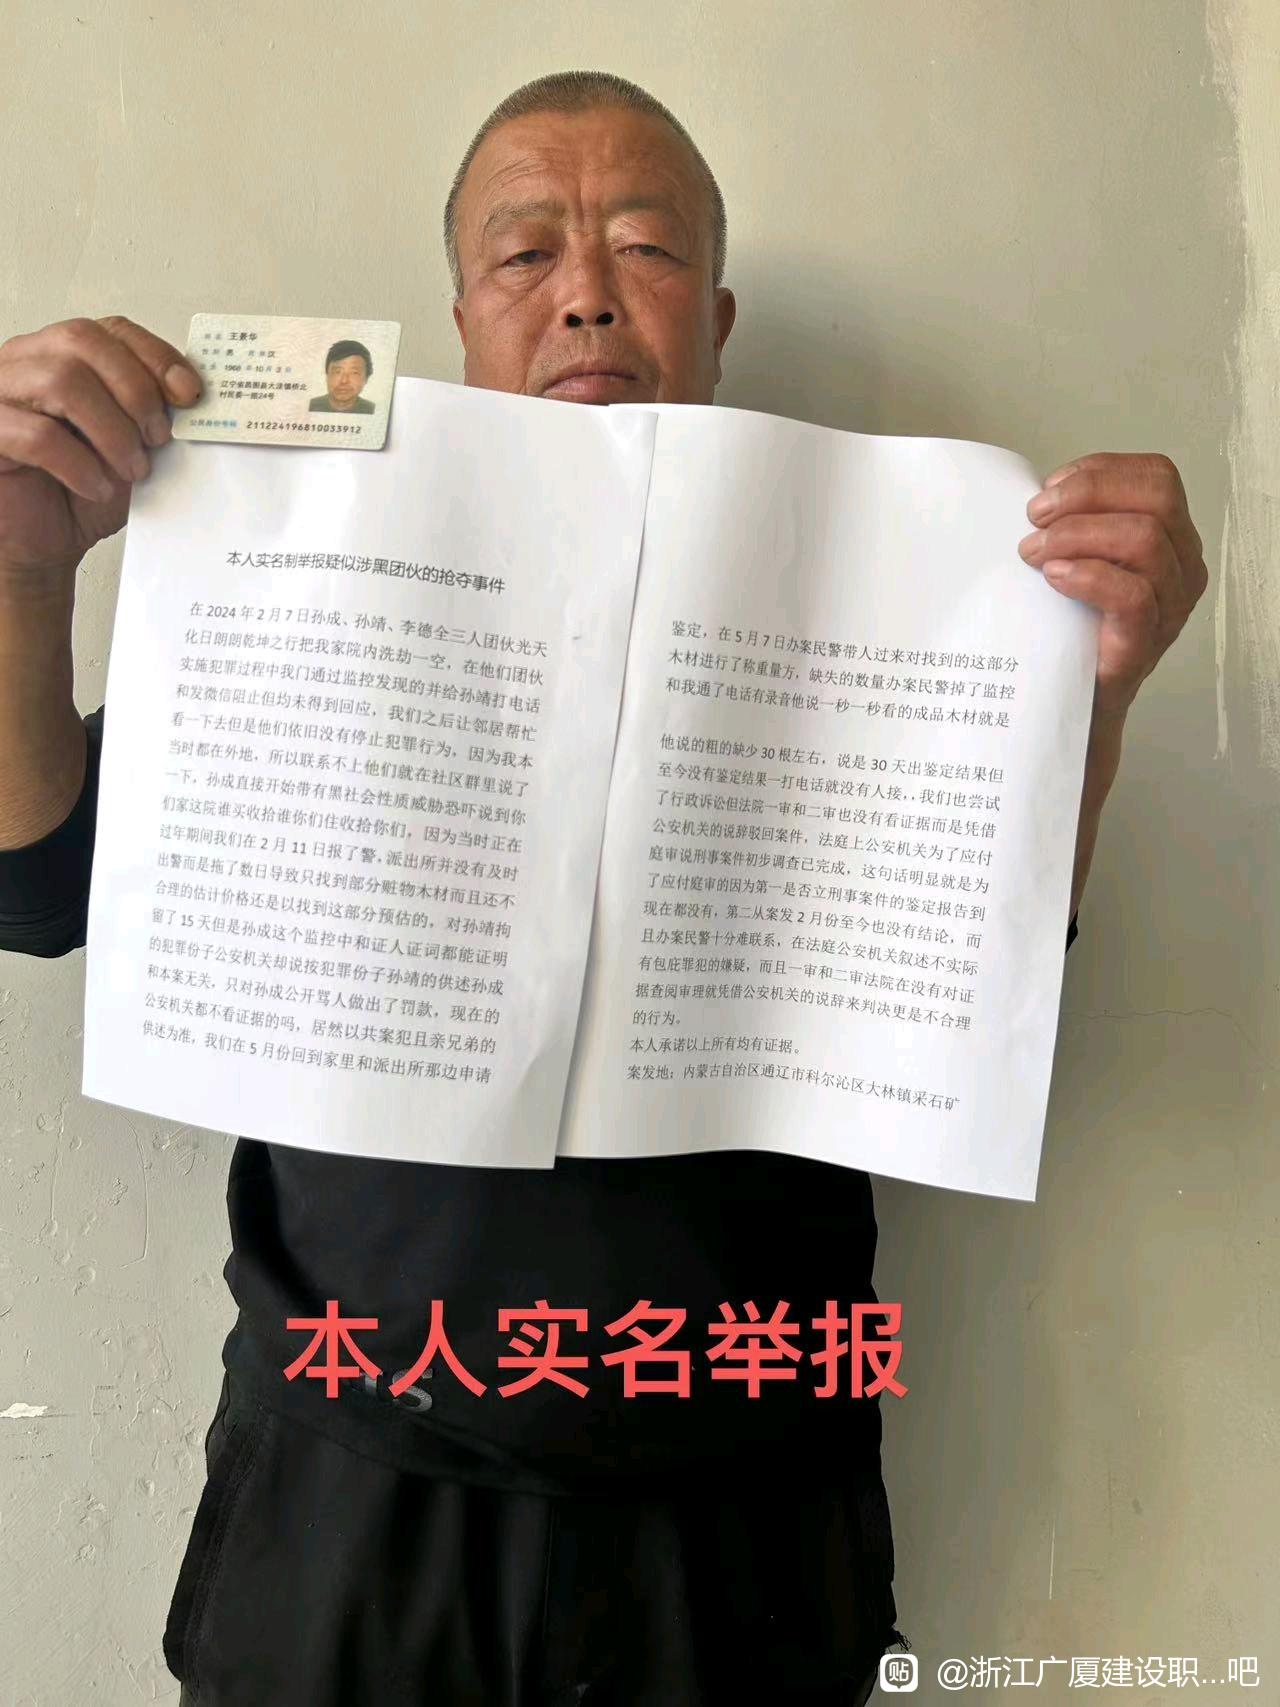 姓名 王景华
性别 男 民族 汉
1968 年 10 月 3 日
辽宁省昌图县大洼镇桥北
村民委一组24号
公民身份号码 211224196810033912
本人实名制举报疑似涉黑团伙的抢夺事件
在2024年2月7日孙成、孙靖、李德全三人团伙光天
化日朗朗乾坤之行把我家院内洗劫一空，在他们团伙
实施犯罪过程中我门通过监控发现的并给孙靖打电话
和发微信阻止但均未得到回应，我们之后让邻居帮忙
看一下去但是他们依旧没有停止犯罪行为，因为我本
当时都在外地，所以联系不上他们就在社区群里说了
一下，孙成直接开始带有黑社会性质威胁恐吓说到你
们家这院谁买收拾谁你们住收拾你们，因为当时正在
过年期间我们在2月11日报了警，派出所并没有及时
出警而是拖了数日导致只找到部分赃物木材而且还不
合理的估计价格还是以找到这部分预估的，对孙靖拘
留了15天但是孙成这个监控中和证人证词都能证明
的犯罪份子公安机关却说按犯罪份子孙靖的供述孙成
和本案无关，只对孙成公开骂人做出了罚款，现在的
公安机关都不看证据的吗，居然以共案犯且亲兄弟的
供述为准，我们在5月份回到家里和派出所那边申请
鉴定，在5月7日办案民警带人过来对找到的这部分
木材进行了称重量方，缺失的数量办案民警掉了监控
和我通了电话有录音他说一秒一秒看的成品木材就是
他说的粗的缺少30根左右，说是30天出鉴定结果但
至今没有鉴定结果一打电话就没有人接，，我们也尝试
了行政诉讼但法院一审和二审也没有看证据而是凭借
公安机关的说辞驳回案件，法庭上公安机关为了应付
庭审说刑事案件初步调查已完成，这句话明显就是为
了应付庭审的因为第一是否立刑事案件的鉴定报告到
现在都没有，第二从案发2月份至今也没有结论，而
且办案民警十分难联系，在法庭公安机关叙述不实际
有包庇罪犯的嫌疑，而且一审和二审法院在没有对证
据查阅审理就凭借公安机关的说辞来判决更是不合理
的行为。
本人承诺以上所有均有证据。
案发地：内蒙古自治区通辽市科尔沁区大林镇采石矿
本人实名举报
贴 @浙江广厦建设职...吧